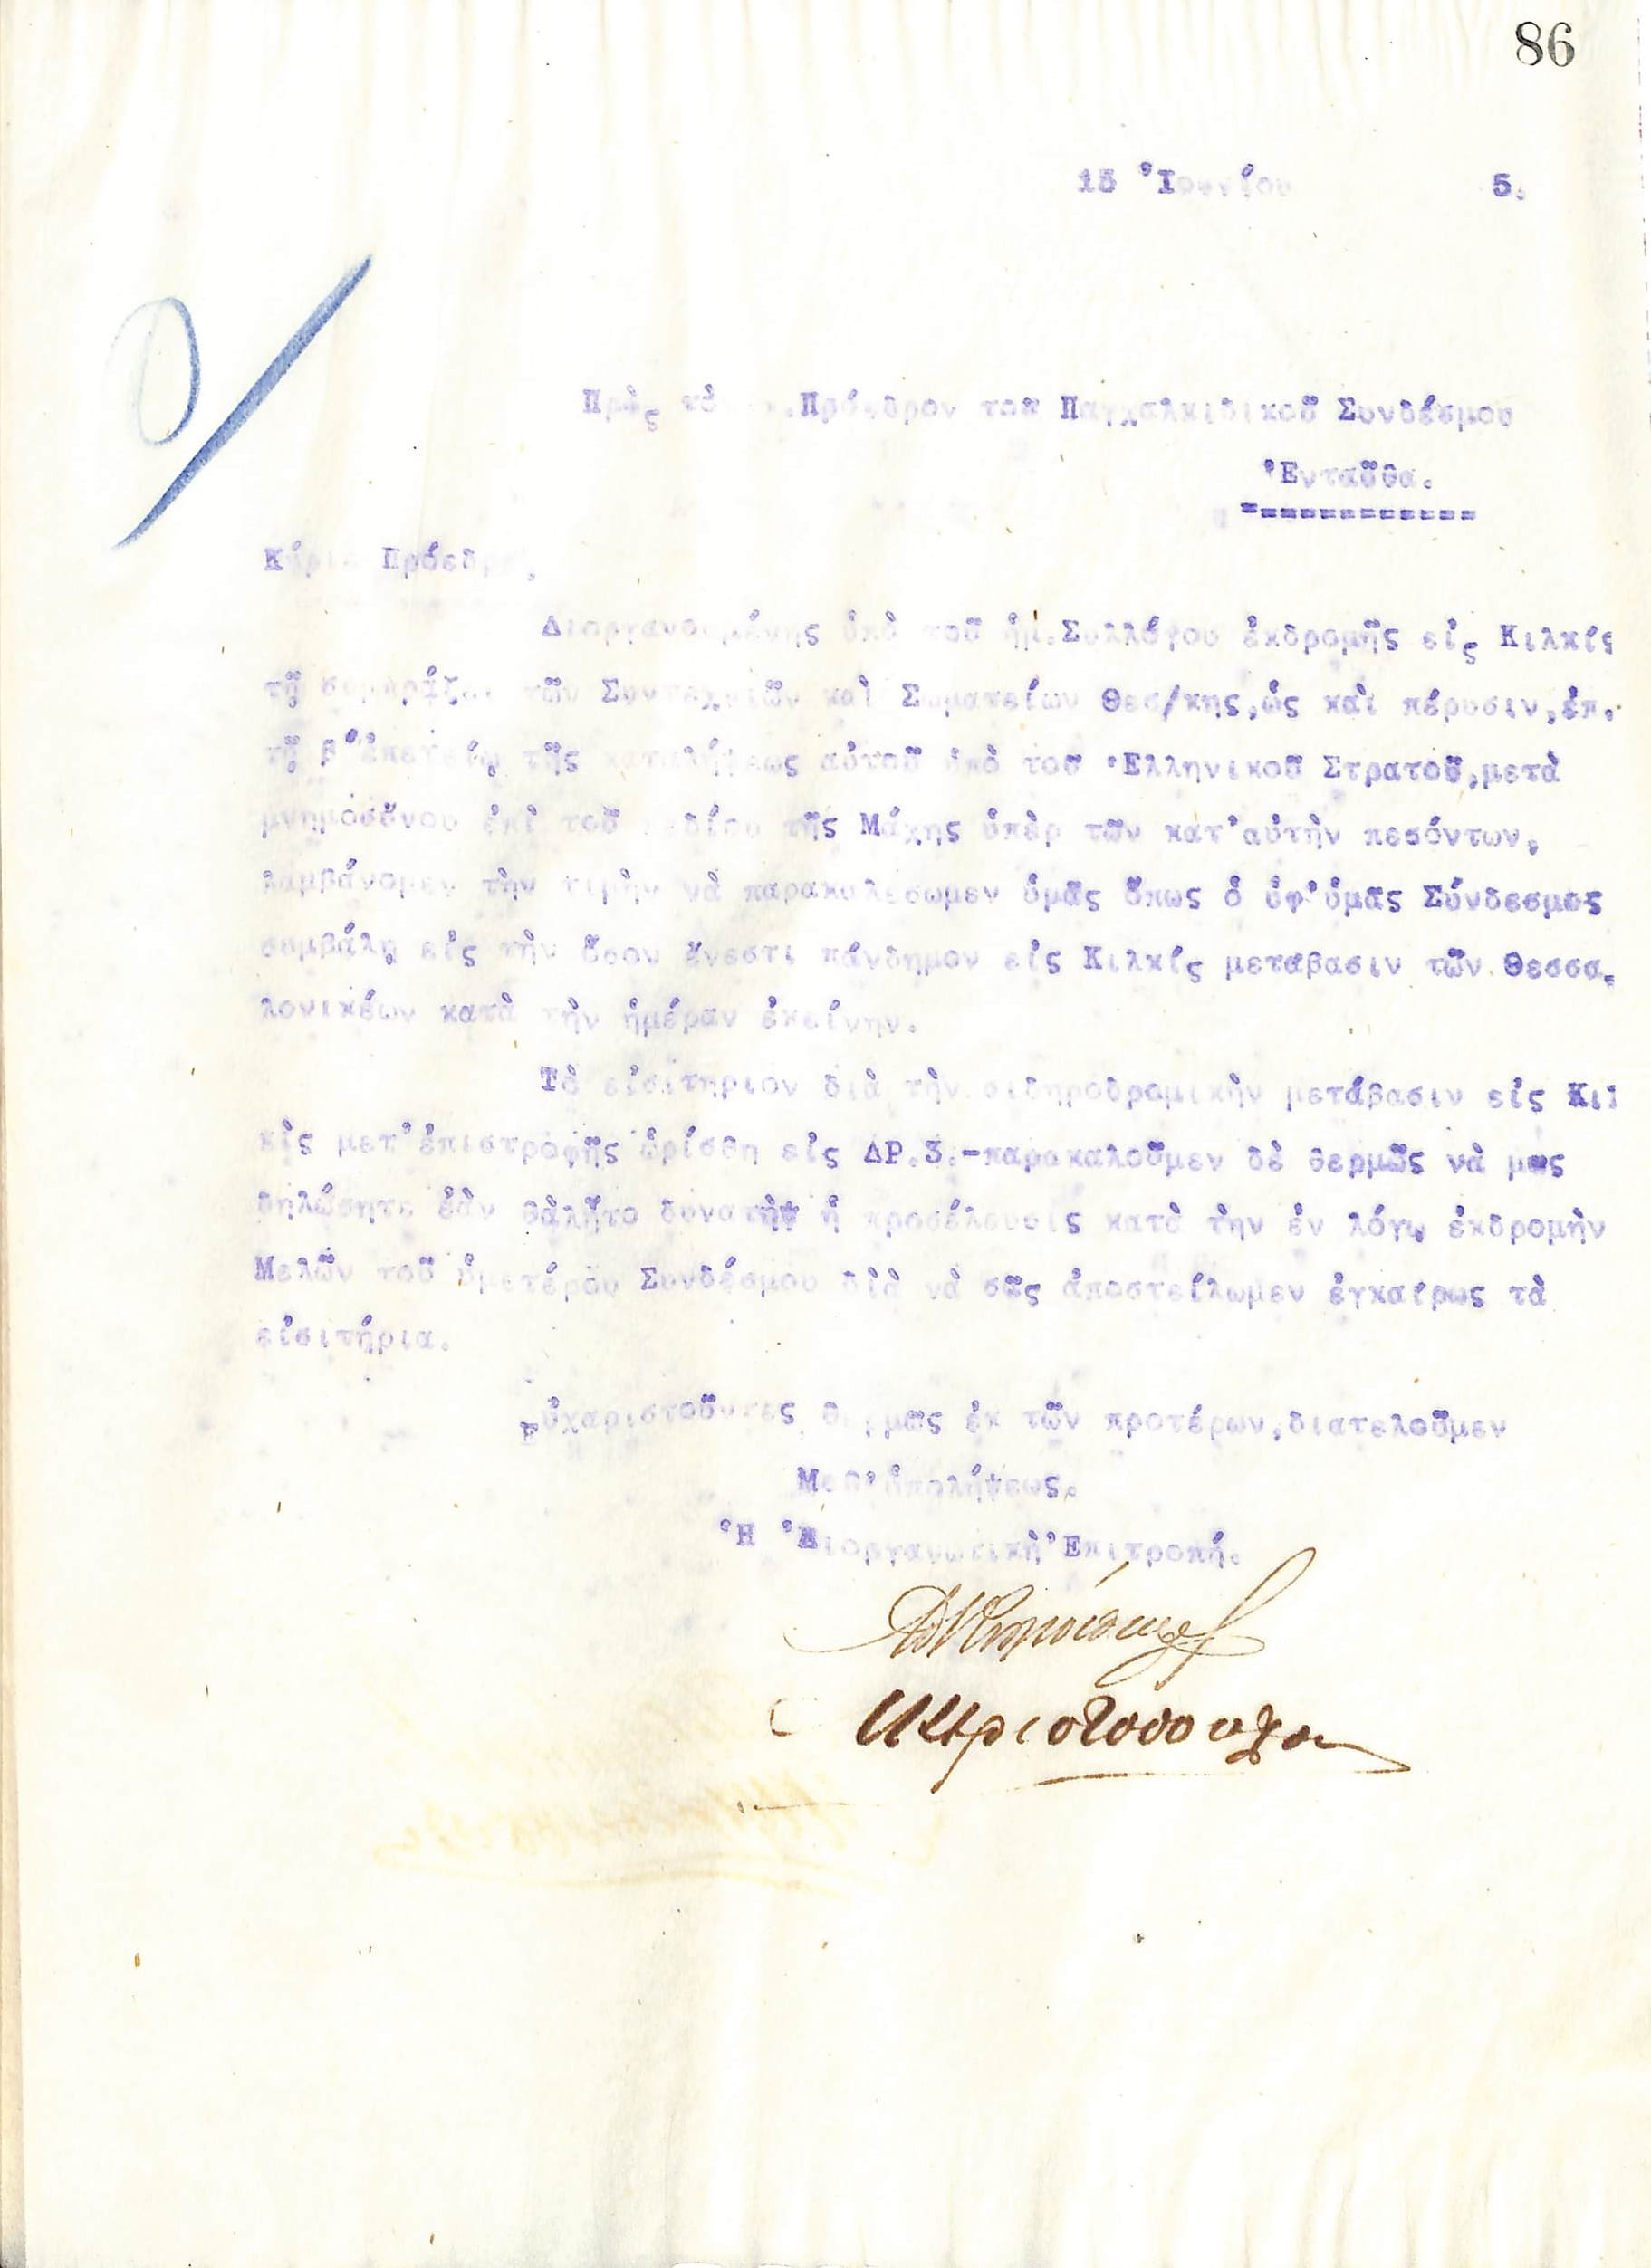 86
15 Ἰουνίου 5.
Πρὸς τὸ .Πρόεδρον του Παγχαλκιδικοῦ Συνδέσμου
Ἐνταῦθα.
Κύριε Πρόεδρε,
Διοργανουμένης ὑπὸ τοῦ ἡμ.Συλλόγου ἐκδρομῆς εἰς Κιλκίς
τῇ τῶν Συντεχνιῶν καὶ Σωματείων Θεσ/κης,ὡς καὶ πέρυσιν,ἐπ.
τῇ β' ἐπετείῳ τῆς καταλήψεως αὐτοῦ ὑπὸ τοῦ Ἑλληνικοῦ Στρατοῦ,μετὰ
μνημοσύνου ἐπὶ τοῦ πεδίου τῆς Μάχης ὑπὲρ τῶν κατ'αὐτὴν πεσόντων,
λαμβάνομεν τὴν τιμὴν νὰ παρακαλέσωμεν ὑμᾶς ὅπως ὁ ὑφ'ὑμᾶς Σύνδεσμος
συμβάλῃ εἰς τὴν ὅσον ἔνεστι πάνδημον εἰς Κιλκίς μετάβασιν τῶν Θεσσα-
λονικέων κατὰ τὴν ἡμέραν ἐκείνην.
Τὸ εἰσιτηριον διὰ τὴν σιδηροδρομικὴν μετάβασιν εἰς Κιλ
κὶς μετ'ἐπιστροφῆς ὡρίσθη εἰς ΔΡ.3.-παρακαλοῦμεν δὲ θερμῶς νὰ μας
δηλώσητε ἐὰν θὰλῆτο δυνατὴ ἡ προσέλευσις κατὰ τὴν ἐν λόγῳ ἐκδρομὴν
Μελῶν τοῦ ὑμετέρου Συνδέσμου διὰ νὰ σᾶς ἀποστείλωμεν ἐγκαίρως τὰ
εἰσιτήρια.
Εὐχαριστοῦντες θερμῶς ἐκ τῶν προτέρων,διατελοῦμεν
Μεθ'ὑπολήψεως.
Ἡ Διοργανωτικὴ Ἐπιτροπή.